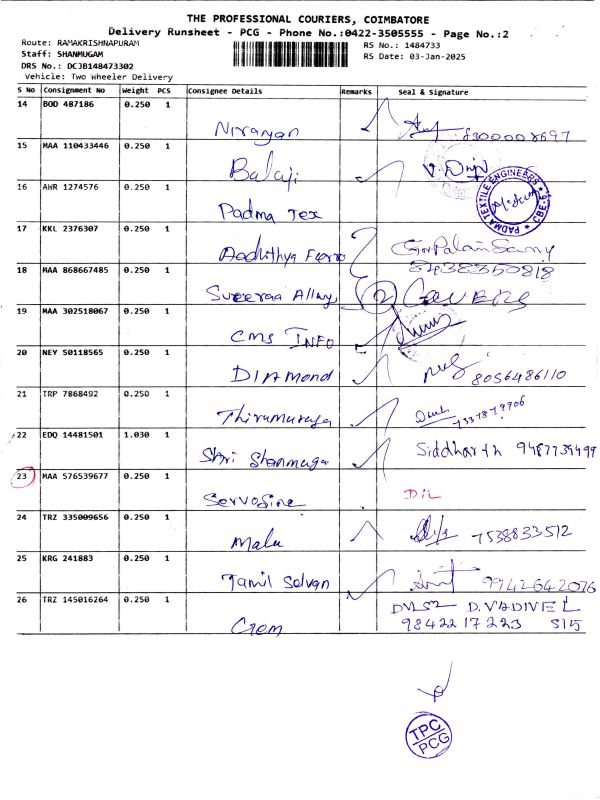 THE PROFESSIONAL COURIERS, COIMBATORE
Delivery Runsheet - PCG - Phone No.:0422-3505555 - Page No.:2
Route: RAMAKRISHNAPURAM
RS No.: 1484733
Staff: SHANMUGAM
RS Date: 03-Jan-2025
DRS No.: DCJB148473302
Vehicle: Two Wheeler Delivery
S No Consignment No Weight PCS Consignee Details Remarks Seal & Signature
14 BOD 487186 0.250 1
Niranjan
15 MAA 110433446 0.250 1
Balaji
16 AHR 1274576 0.250 1
Padma Tex
PADMA TEXTILE ENGINEERS
17 KKL 2376307 0.250 1
8438350818
18 MAA 868667485 0.250 1
2
19 MAA 302518067 0.250 1
CMS INFO
20 NEY 50118565 0.250 1
Diamond
8056486110
21 TRP 7868492 0.250 1
22 EDQ 14481501 1.030 1
Shri Shanmuga
Siddharth
23 MAA 576539677 0.250 1
DIL
24 TRZ 335009656 0.250 1
Malu
7538833512
25 KRG 241883 0.250 1
Tamil Selvan
9942642076
26 TRZ 145016264 0.250 1
D. VADIVEL
Crem
98422 17223
TPC
PCG